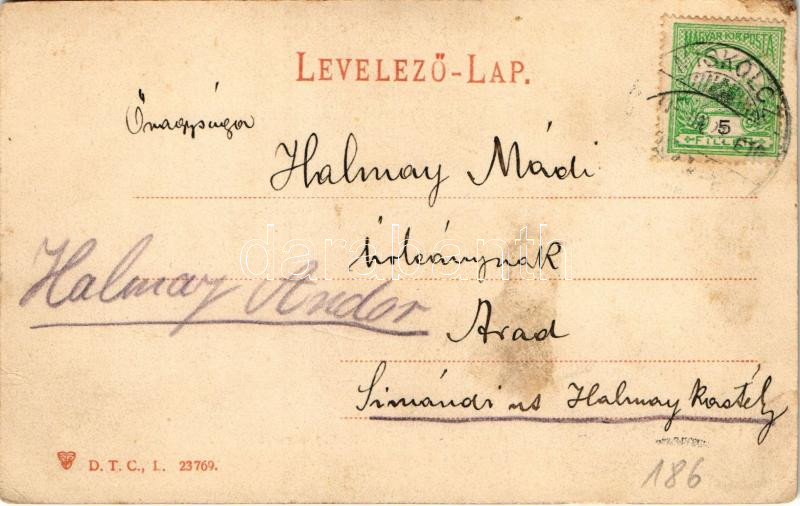 LEVELEZŐ-LAP.
MAGYAR KIR. POSTA
MISKOLC
5
FILLÉR
Őnagysága
Halmay Mádi
úrleánynak
Halmay Andor
Arad
Simándi ut Halmay kastély
D. T. C., L. 23769.
186
darabanth